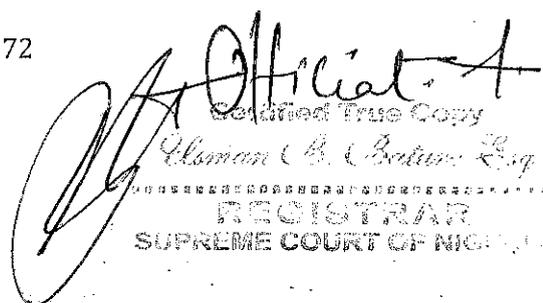 72
Official
Certified True Copy
Usman B. Bature Esq
REGISTRAR
SUPREME COURT OF NIG